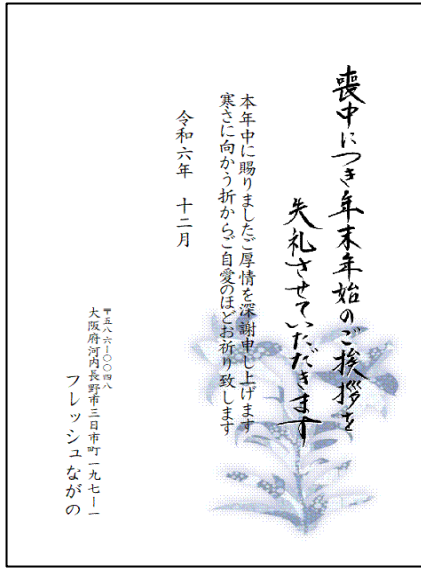 喪中につき年末年始のご挨拶を
失礼させていただきます
本年中に賜りましたご厚情を深謝申し上げます
寒さに向かう折からご自愛のほどお祈り致します
令和六年 十二月
〒五八六ー〇〇四八
大阪府河内長野市三日市町一九七ー一
フレッシュながの